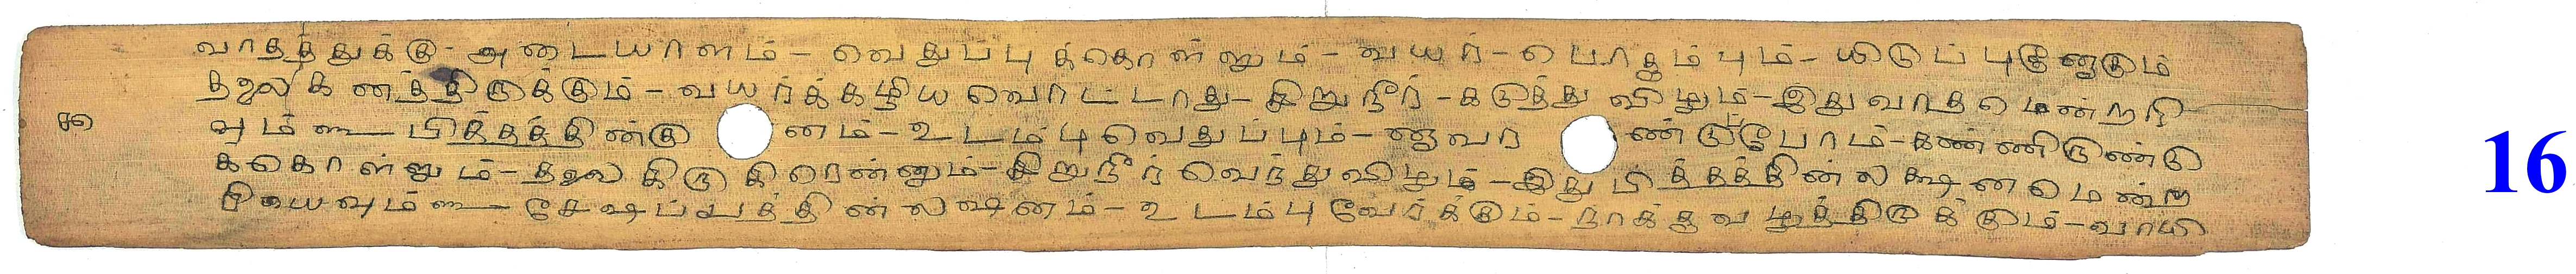 வாதத்துக்கு - அடையாளம் - வெதுப்புக்கொள்ளும் - வயர் - பொருமும் - யிடுப்புளுகும்
தலை கனத்திருக்கும் - வயர்க்கழிய வொட்டாது - சிறுநீர் - கடுத்து விழும் - இது வாதமென்றறி
௧௬
வும் பித்தத்தின்கு னம் - உடம்பு வெதுப்பும் - ண்டுபோம் - கண்ணிருண்டு
கொள்ளும் - தலை கிரு கிரென்னும் - சிறுநீர் வெந்துவிழும் - இது பித்தத்தின் லக்ஷனமென்ற
றியவும் சேஷப்பத்தின் லஷனம் - உடம்பு வேர்க்கும் - நாக்கு வழுத்திருக்கும் - வாயி
16